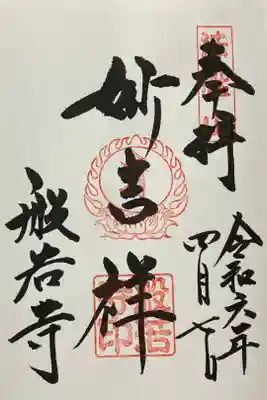 奉拝
令和六年
四月七日
妙吉祥
般若寺
般若寺印